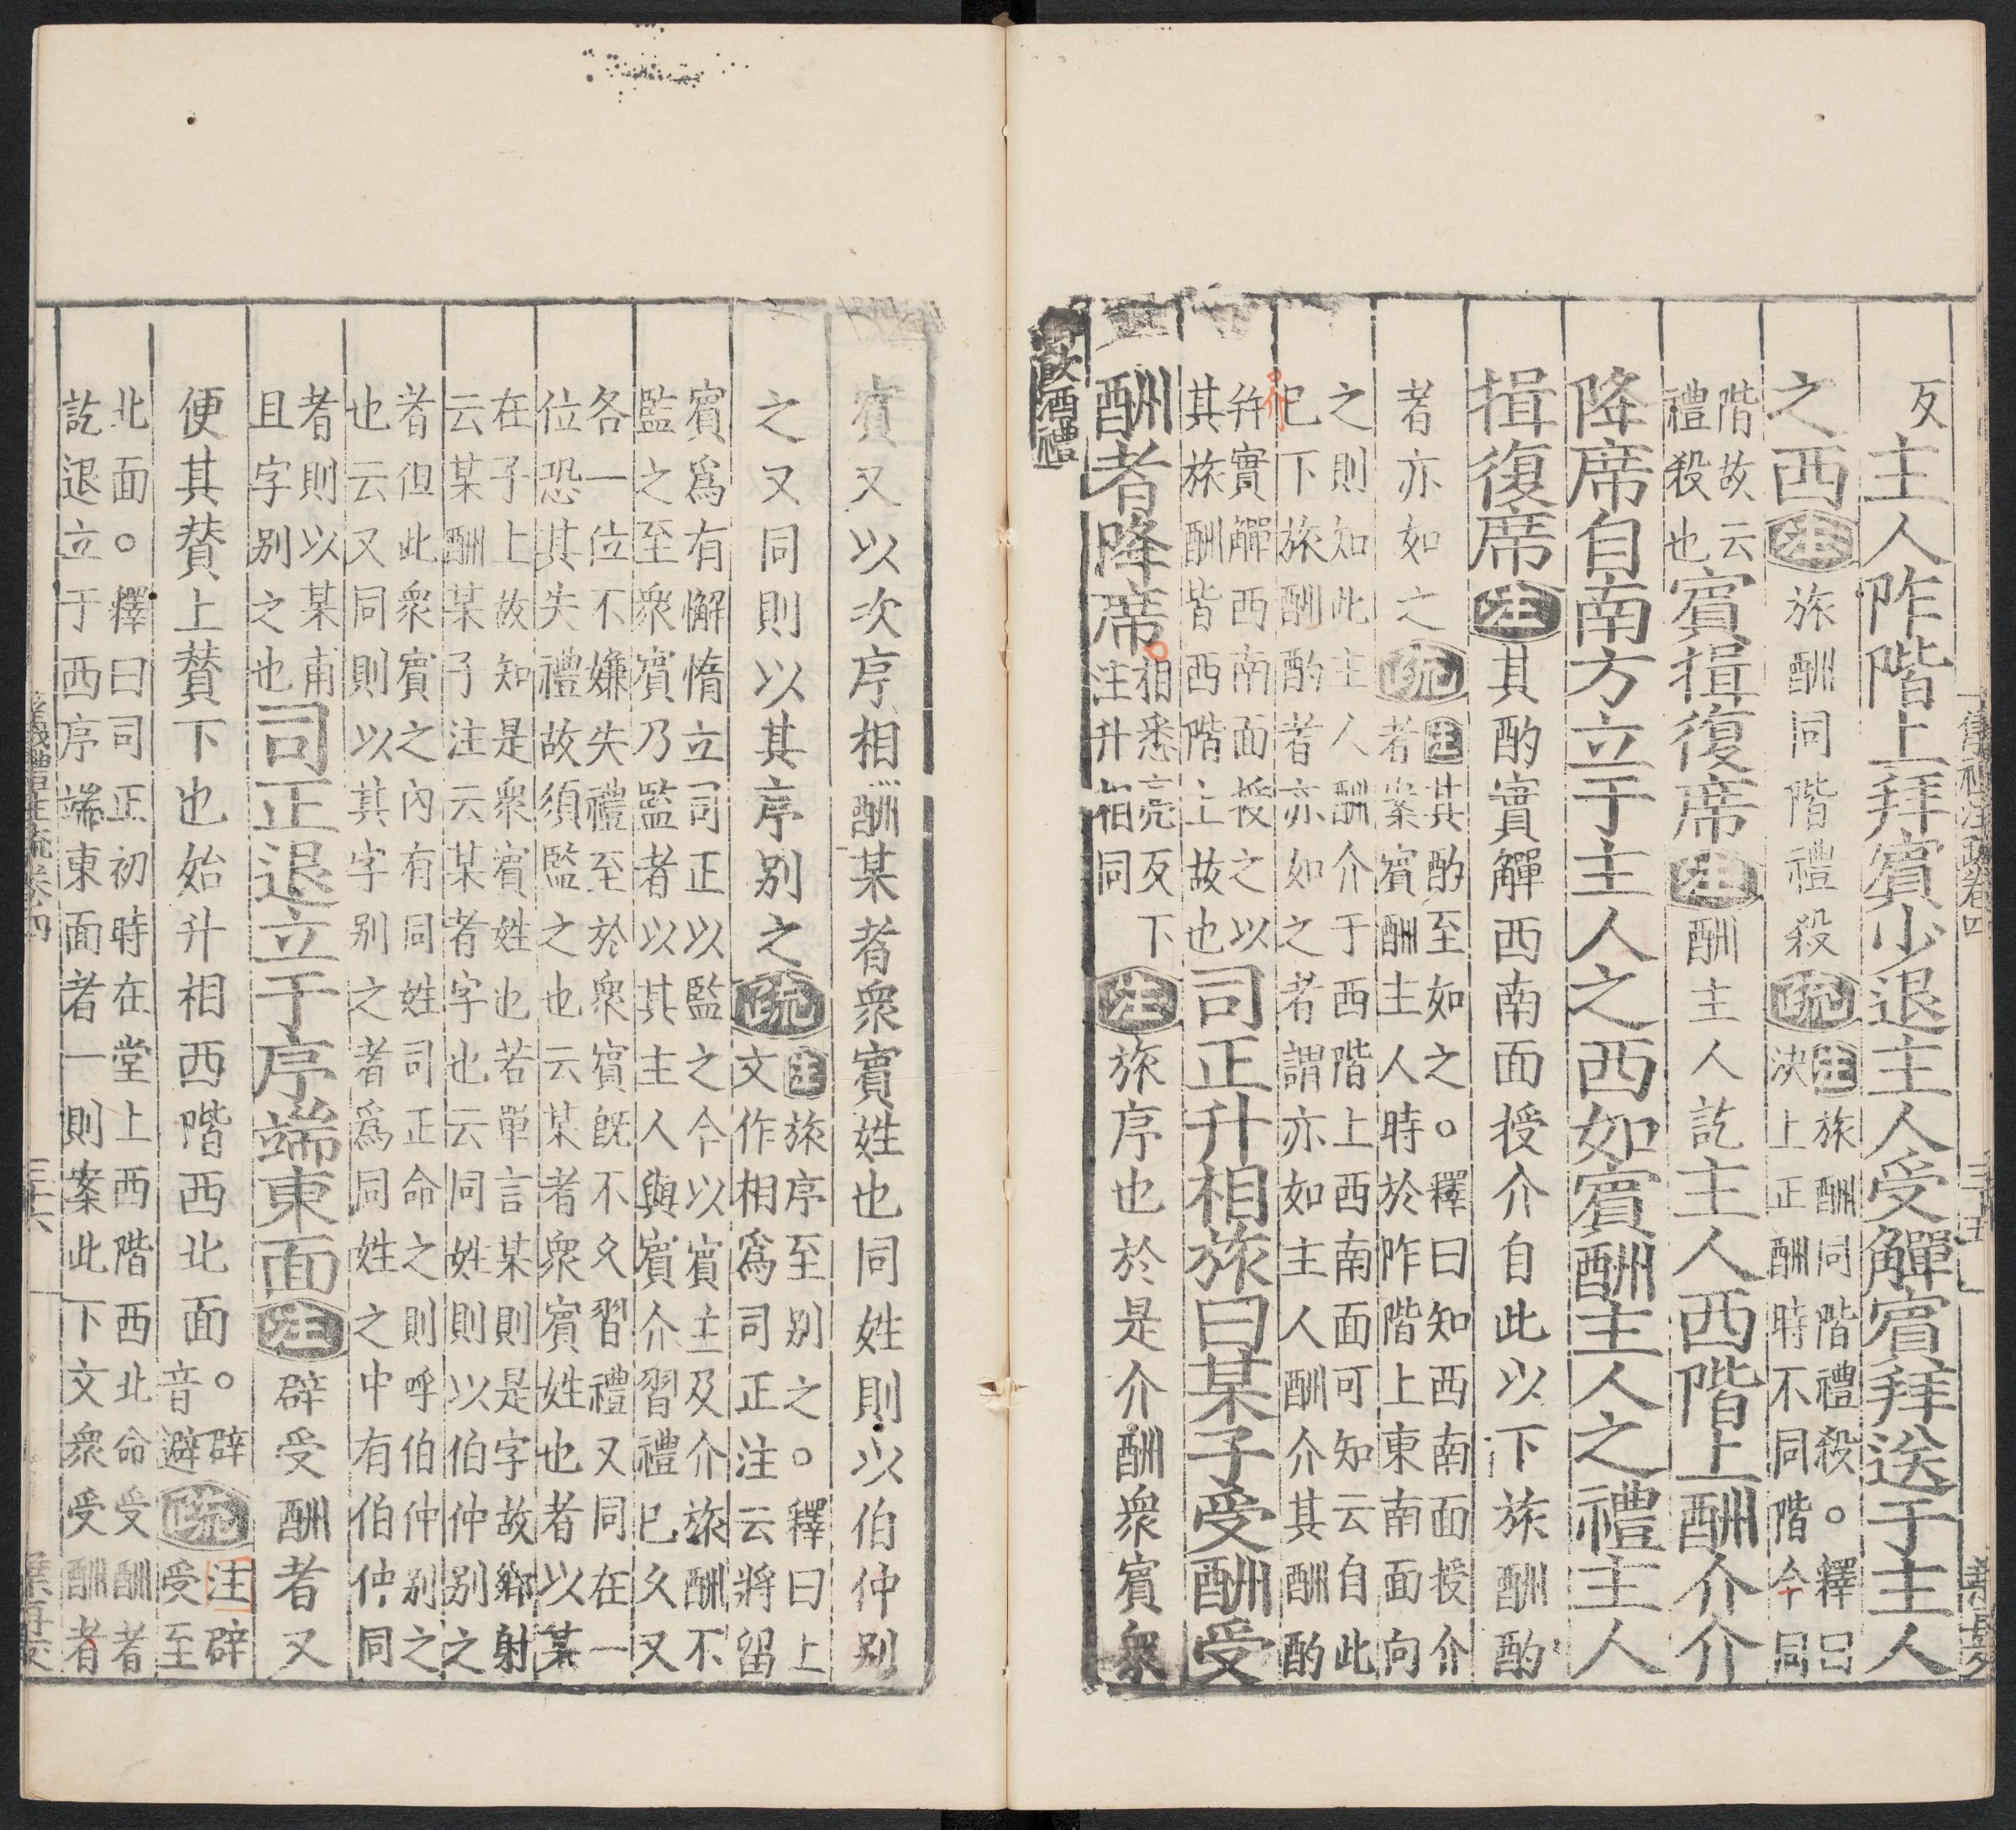 反主人阼階上拜賓少退主人受觶賓拜送于主人
之西注旅酬同階禮殺疏注旅酬同階禮殺。釋曰
決上正酬時不同階今同
階故云
禮殺也賓揖復席注酬主人訖主人西階上酬介介
降席自南方立于主人之西如賓酬主人之禮主人
揖復席注其酌實觶西南面授介自此以下旅酬酌
者亦如之疏注其酌至如之。釋曰知西南面授介
者案賓酬主人時於阼階上東南面向
之則知此主人酬介于西階上西南面可知云自此
已下旅酬酌者亦如之者謂亦如主人酬介其酬酌
介
并實觶西南面授之以
其旅酬皆西階上故也司正升相旅曰某子受酬受
酬者降席相悉亮反下
注升相同注旅序也於是介酬衆賓衆
飲酒禮
賓又以次序相酬某者衆賓姓也同姓則以伯仲别
之又同則以其序别之疏注旅序至别之。釋曰上
文作相爲司正注云將留
賓爲有懈惰立司正以監之今以賓主及介旅酬不
監之至衆賓乃監者以其主人與賓介習禮已久又
各一位不嫌失禮至於衆賓既不久習禮又同在一
位恐其失禮故須監之也云某者衆賓姓也者以某
在子上故知是衆賓姓也若單言某則是字故鄉射
云某酬某子注云某者字也云同姓則以伯仲别之
者但此衆賓之內有同姓司正命之則呼伯仲别之
也云又同則以其字别之者爲同姓之中有伯仲同
者則以某甫
且字别之也司正退立于序端東面注辟受酬者又
便其贊上贊下也始升相西階西北面。辟
音避疏注辟
受至
北面。釋曰司正初時在堂上西階西北命受酬者
訖退立于西序端東面者一則案此下文衆受酬者